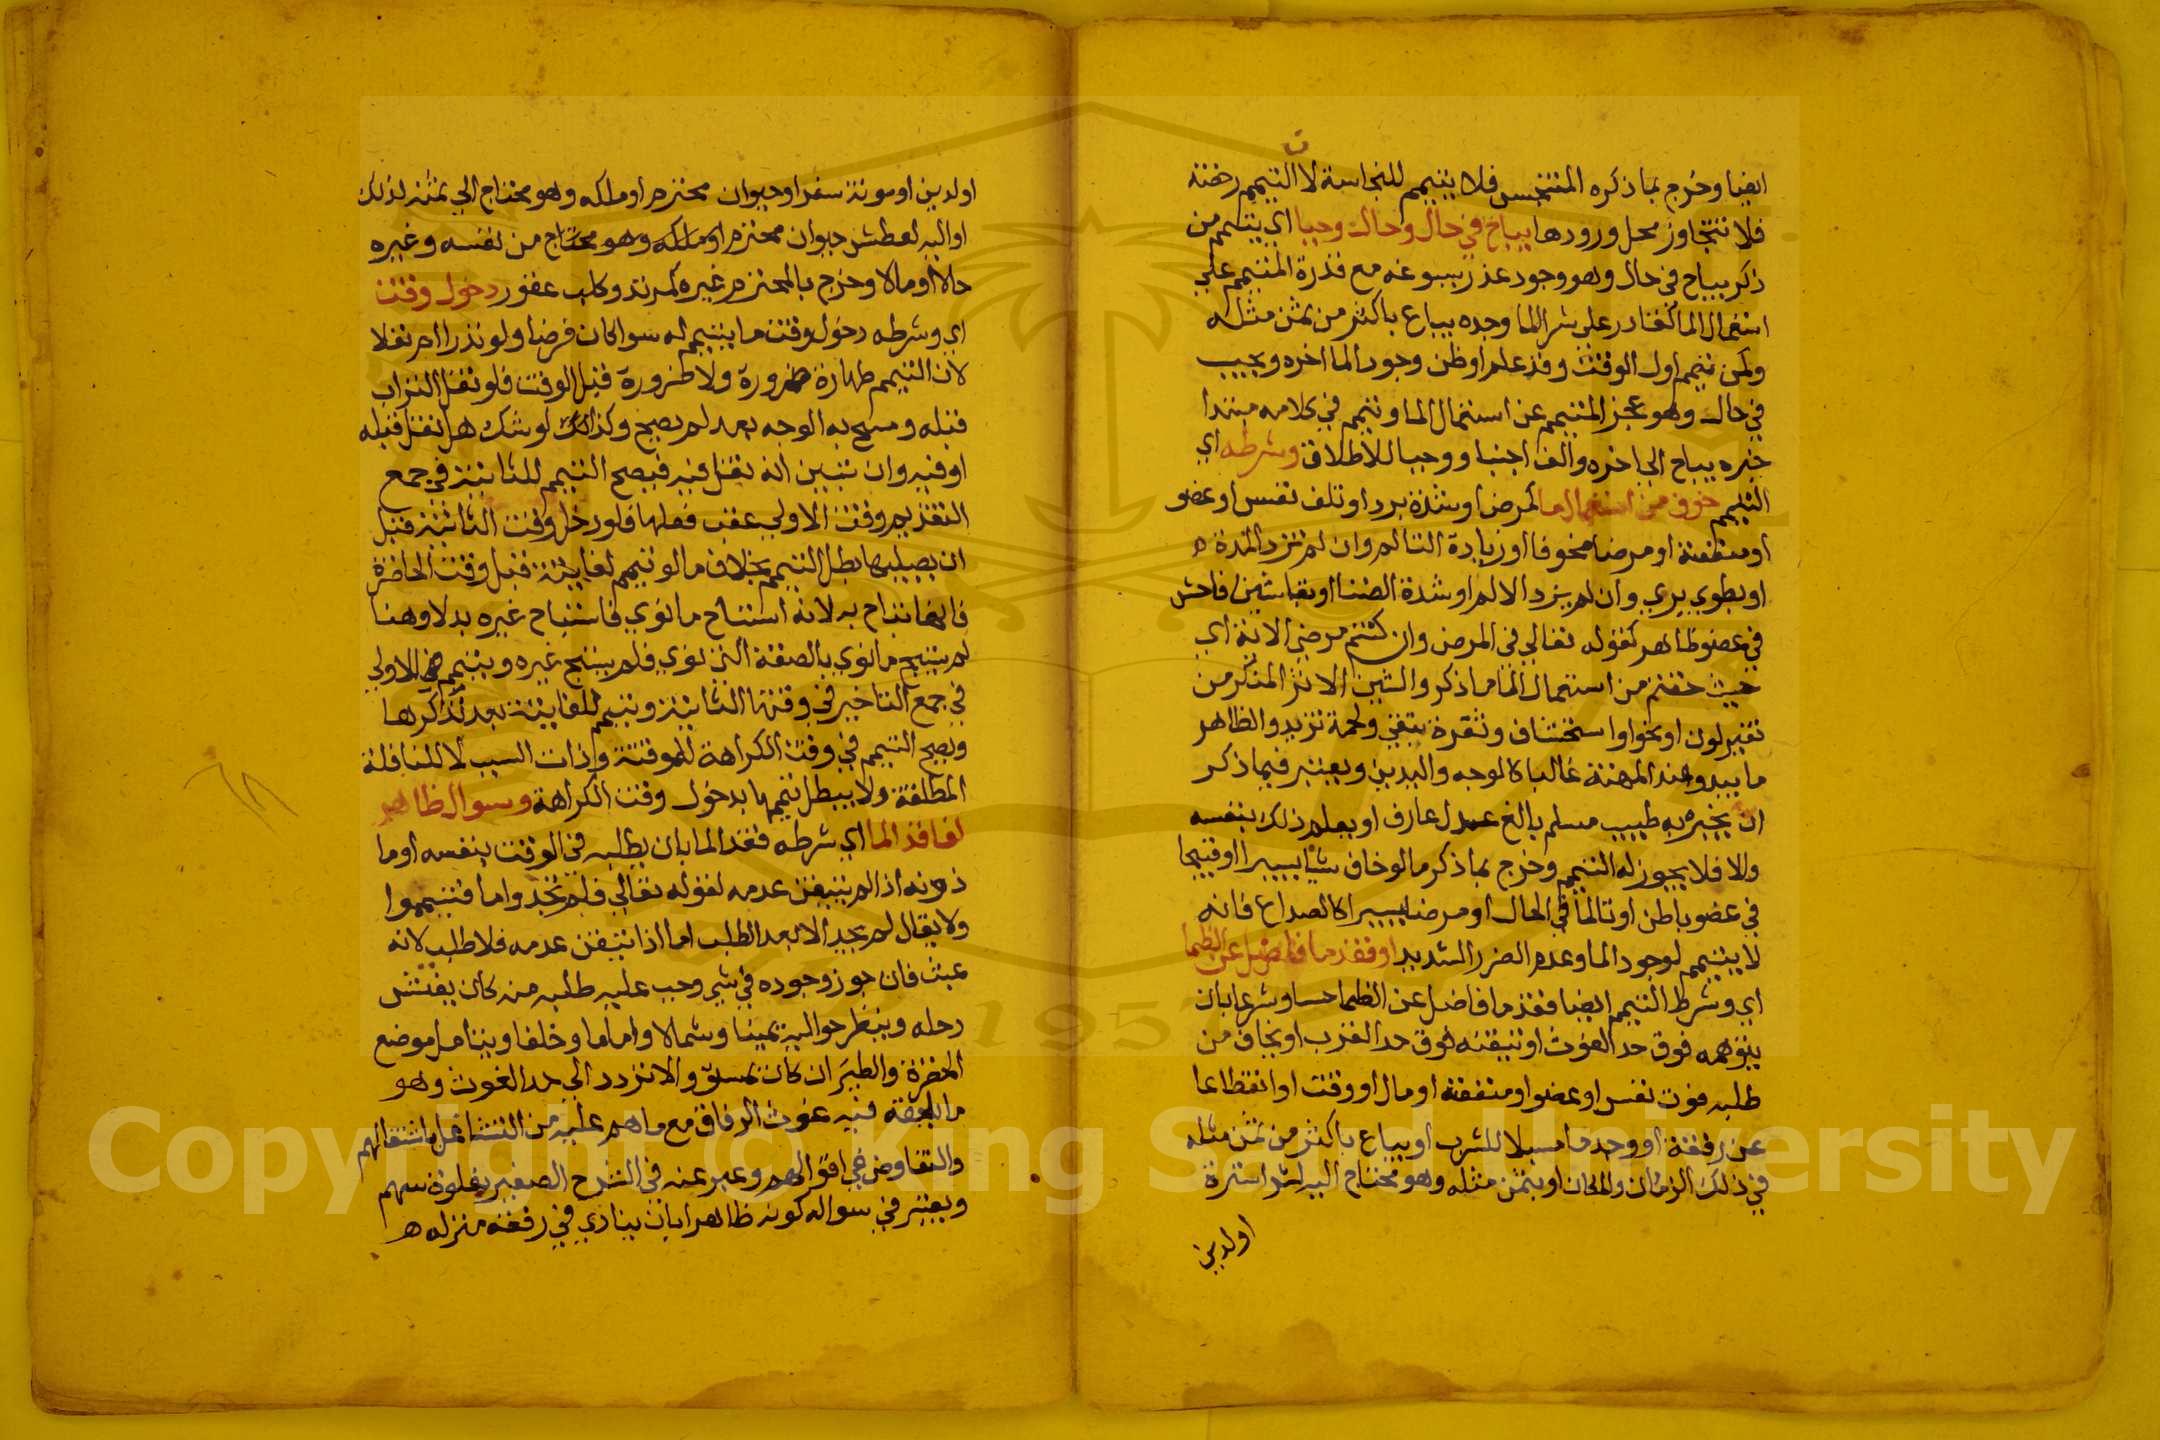 ايضا وخرج بما ذكره المتنجس فلا يتيمم للنجاسة لان التيمم رخصة
فلا تتجاوز محل ورودها يباح في حال وحال وجبا اي يتيمم من
ذكر يباح في حال وهو وجود عذر يسوغه مع قدرة المتيمم علي
استعمال الما كقادر علي شرا لما وجده يباع باكثر من ثمن مثله
وكمن تيمم اول الوقت وقد علم او ظن وجود الما اخره ويجب
في حال وهو عجز المتيمم عن استعمال الما وتيمم في كلامه مبتدا
خبره يباح الي اخره والف اجنبا ووجبا للاطلاق وشرطه اي
التيمم خوف من استعمال ما لمرض او شدة برد او تلف نفس او عضو
او منفعة او مرضا مخوفا او زيادة التالم وان لم تزد المدة ه
او بطوي بري وان لم يزد الالم او شدة الضنا او بقا شين فاحش
في عضو ظاهر كقوله تعالي في المرض وان كنتم مرضي الاية اي
حيث خفتم من استعمال الما ما ذكر والشين الاثر المنكر من
تغير لون او نحول او استحشاف وثغرة تبقي ولحمة تزيد والظاهر
ما يبدو عند المهنة غالبا كالوجه واليدين ويعتبر فيما ذكر
ان يخبره به طبيب مسلم بالغ عدل عارف او يعلم ذلك بنفسه
والا فلا يجوز له التيمم وخرج بما ذكر ما لو خاف شيا يسيرا او قبيحا
في عضو باطن او تالما في الحال او مرضا يسيرا كالصداع فانه
لا يتيمم لوجود الما وعدم الضرر الشديد او فقد ما فاضل عن الظما
اي وشرط التيمم ايضا فقد ما فاضل عن الظما حسا وشرعا بان
يتوهمه فوق حد الغوث او تيقنه فوق حد القرب او يخاف من
طلبه فوت نفس او عضو او منفعة او مال او وقت او انقطاعا
عن رفقة او وجد ما مسبلا للشرب او يباع باكثر من ثمن مثله
في ذلك الزمان والمكان او بثمن مثله وهو محتاج اليه لشرا سترة
او لدين
او لدين او مونة سفر او حيوان محترم او ملكه وهو محتاج الي ثمنه لذلك
او اليه لعطش حيوان محترم او ملكه وهو محتاج من نفسه وغيره
حالا او مالا وخرج بالمحترم غيره كمرتد وكلب عقور دخول وقت
اي وشرطه دخول وقت ما يتيمم له سوا كان فرضا ولو نذرا ام نفلا
لان التيمم طهارة ضرورة ولا ضرورة قبل الوقت فلو نقل التراب
قبله ومسح به الوجه بعد لم يصح وكذلك لو شك هل نقل قبله
او فيه وان تبين انه نقل فيه فيصح التيمم للثانية في جمع
التقديم وقت الاولي عقب فعلها فلو دخل وقت الثانية قبل
ان يصليها بطل التيمم بخلاف ما لو تيمم لفايتة قبل وقت الحاضرة
فانها تباح به لانه استباح ما نوي فاستباح غيره بدلا وهنا
لم يستبح ما نوي بالصفة التي نوي فلم يستبح غيره ويتيمم للاولي
في جمع التاخير في وقتها الثانية ويتيمم للفايتة بعد تذكرها
ويصح التيمم في وقت الكراهة للموقتة وذات السبب لا للنافلة
المطلقة ولا يبطل تيممها بدخول وقت الكراهة وسوال ظاهر
لفاقد الما اي شرطه فقد الما بان يطلبه في الوقت بنفسه او ما
ذونه اذا لم يتيقن عدمه لقوله تعالي فلم تجدوا ما فتيمموا
ولا يقال لم يجد الا بعد الطلب اما اذا تيقن عدمه فلا طلب لانه
عبث فان جوز وجوده في شي وجب عليه طلبه منه كان يفتش
رحله وينظر حواليه يمينا وشمالا واماما وخلفا ويتامل موضع
الخضرة والطير ان كان بمستو والا تردد الي حد الغوث وهو
ما يلحقه فيه غوث الرفاق مع ما هم عليه من التشاغل باشغالهم
والتفاوض في اقوالهم وعبر عنه في الشرح الصغير بغلوة سهم
ويعتبر في سواله كونه ظاهرا بان ينادي في رفقة منزله ه
Copyright © King Saud University
1957